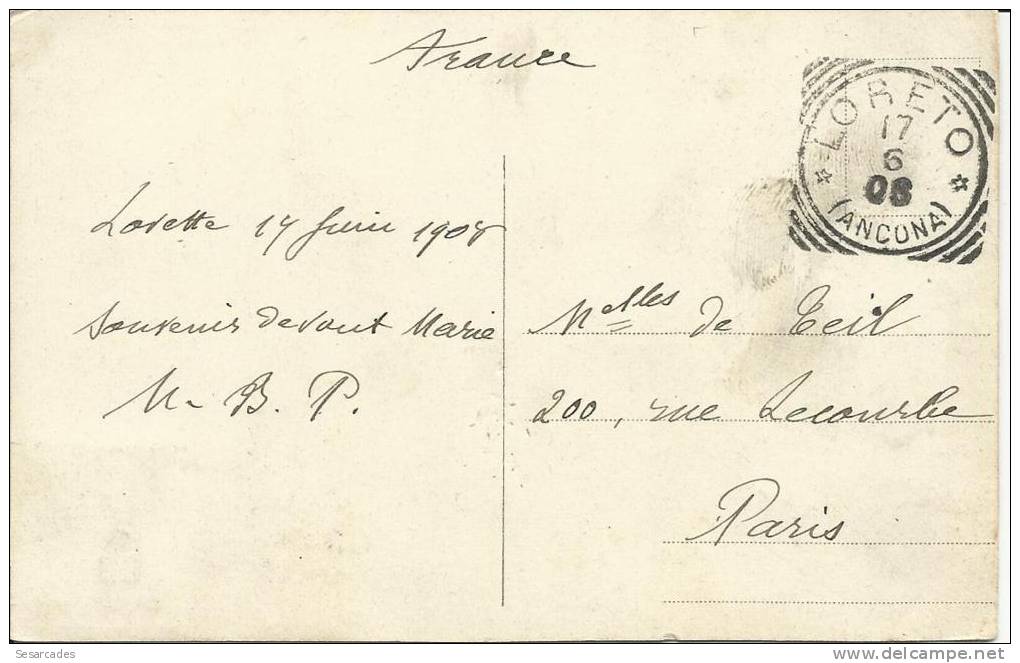 France
LORETO
17
6
08
(ANCONA)
Lorette 17 Juin 1908
Souvenir devant Marie
M- B. P.
Melles de Teil
200, rue Lecourbe
Paris
Sesarcades
www.delcampe.net